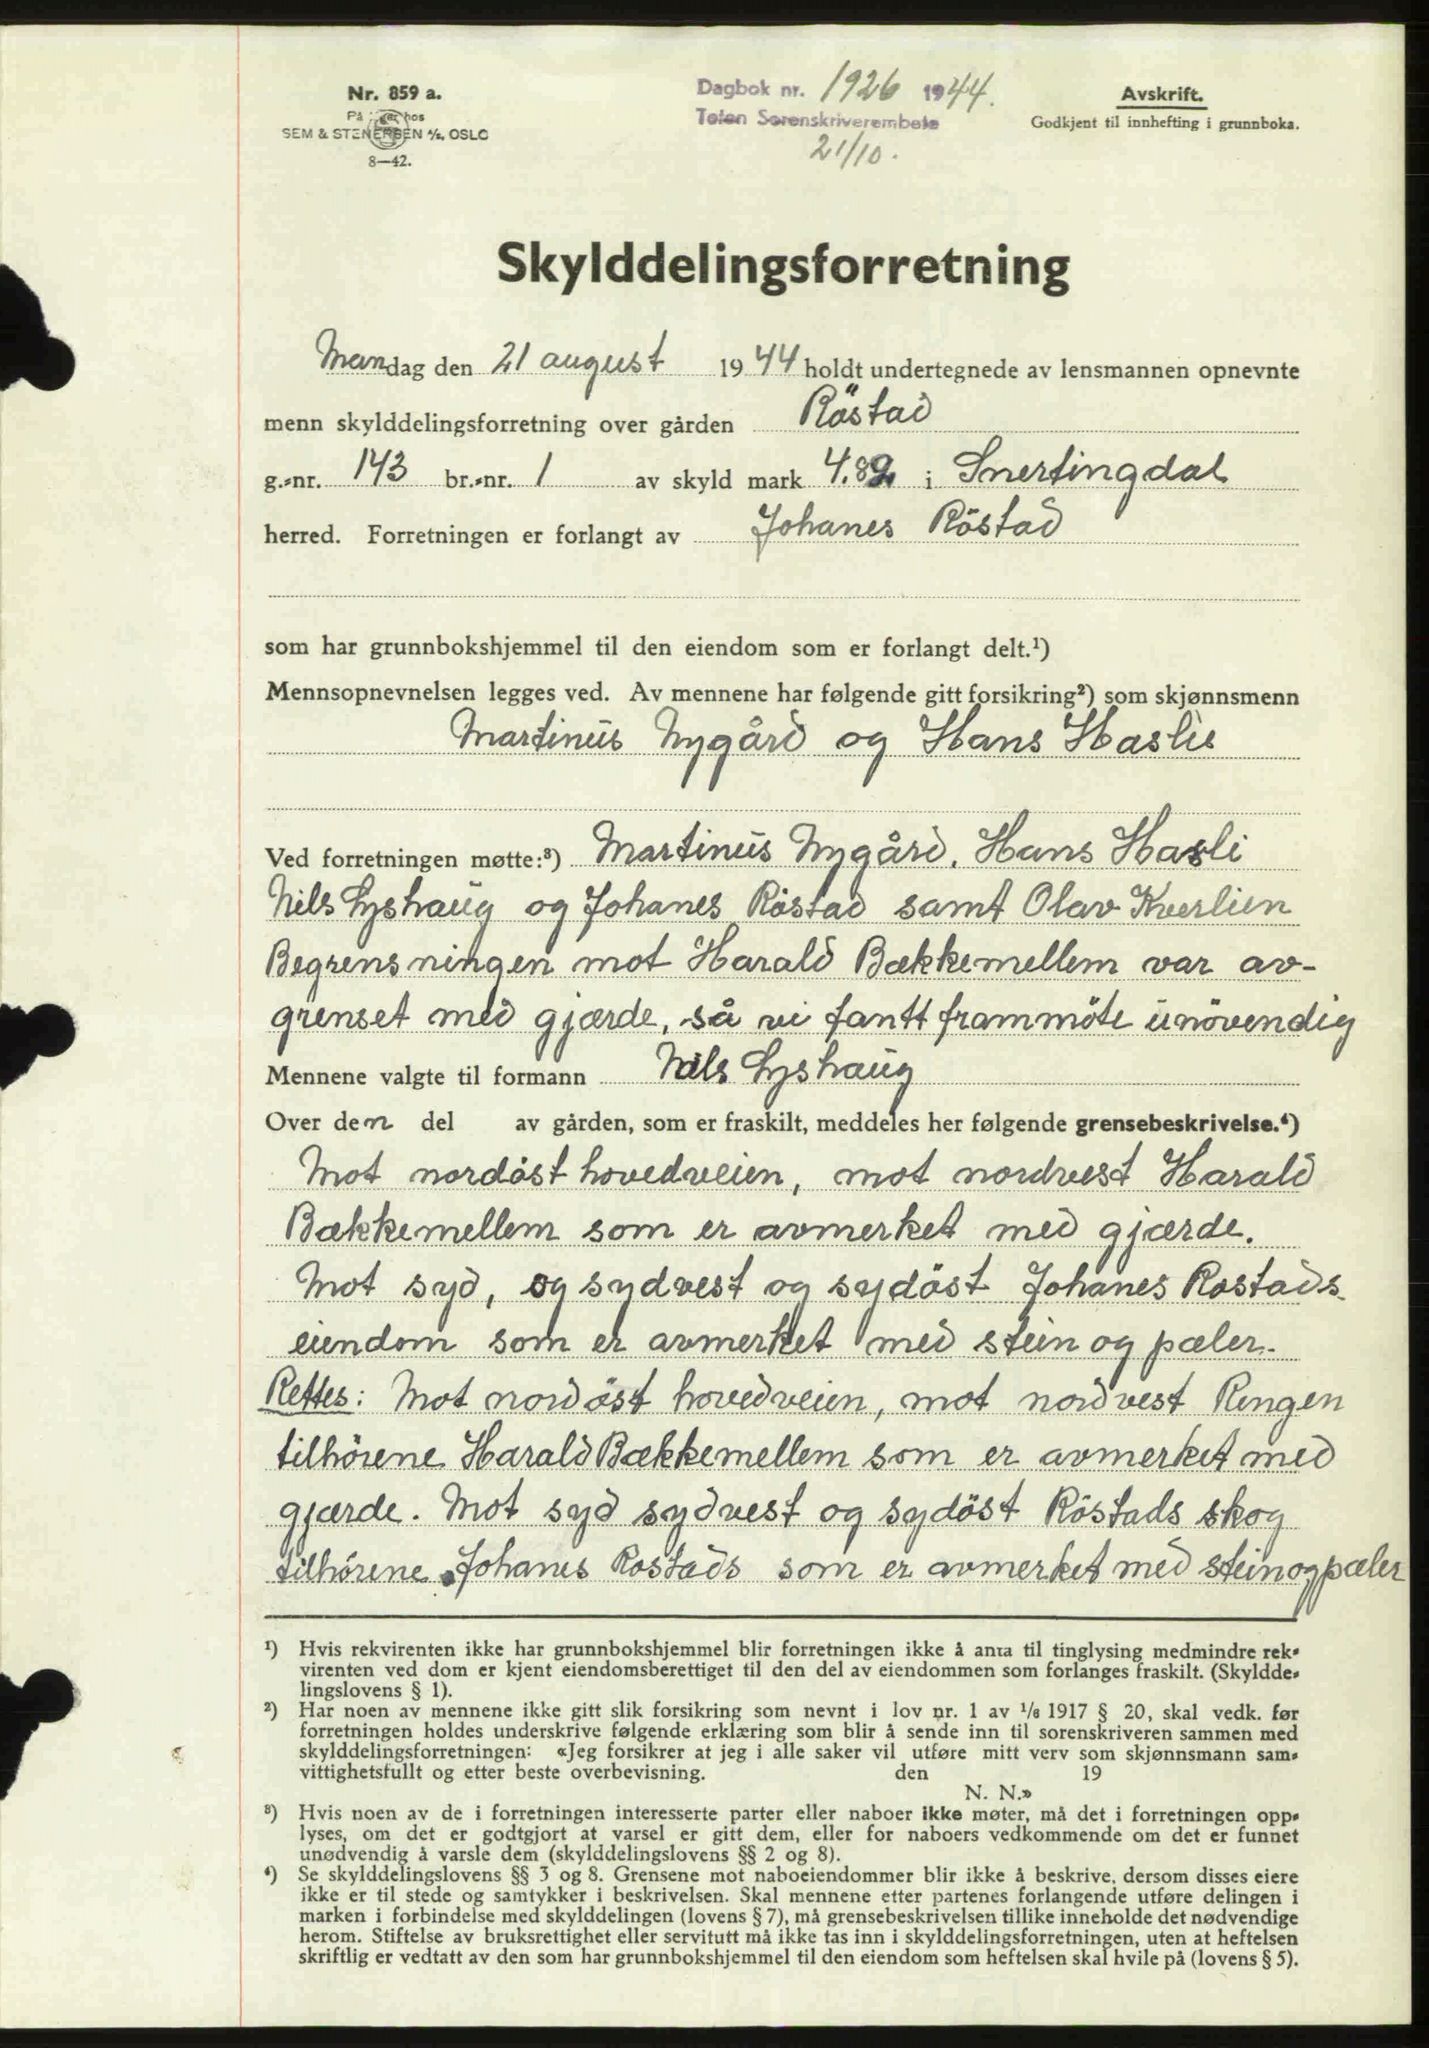 Nr. 859 a.
På lager hos
SEM & STENERSEN A/S, OSLO
8—42.
Dagbok nr. 1926 1944.
Toten Sorenskriverembete
21/10.
Avskrift.
Godkjent til innhefting i grunnboka.
Skylddelingsforretning
Mandag den 21 august 1944 holdt undertegnede av lensmannen opnevnte
menn skylddelingsforretning over gården Röstad
g.-nr. 143 br.-nr. 1 av skyld mark 4.82 i Snertingdal
herred. Forretningen er forlangt av Johanes Röstad
som har grunnbokshjemmel til den eiendom som er forlangt delt.¹)
Mennsopnevnelsen legges ved. Av mennene har følgende gitt forsikring²) som skjønnsmenn
Martinus Nygård og Hans Haslie
Ved forretningen møtte:³) Martinus Nygård, Hans Hasli
Nils Lyshaug og Johanes Röstad samt Olav Kverlien
Begrensningen mot Harald Bækkemellem var av-
grenset med gjærde, så vi fantt frammöte unövendig
Mennene valgte til formann Nils Lyshaug
Over den del av gården, som er fraskilt, meddeles her følgende grensebeskrivelse.⁴)
Mot nordöst hovedveien, mot nordvest Harald
Bækkemellem som er avmerket med gjærde.
Mot syd, og sydvest og sydöst Johanes Rostads
eiendom som er avmerket med stein og pæler.
Rettes: Mot nordöst hovedveien, mot nordvest Ringen
tilhörene Harald Bækkemellem som er avmerket med
gjærde. Mot syd sydvest og sydöst Röstads skog
tilhörene Johanes Rostads som er avmerket med stein og pæler
¹) Hvis rekvirenten ikke har grunnbokshjemmel blir forretningen ikke å anta til tinglysing medmindre rek-
virenten ved dom er kjent eiendomsberettiget til den del av eiendommen som forlanges fraskilt. (Skyldde-
lingslovens § 1).
²) Har noen av mennene ikke gitt slik forsikring som nevnt i lov nr. 1 av 1/6 1917 § 20, skal vedk. før
forretningen holdes underskrive følgende erklæring som blir å sende inn til sorenskriveren sammen med
skylddelingsforretningen: «Jeg forsikrer at jeg i alle saker vil utføre mitt verv som skjønnsmann sam-
vittighetsfullt og etter beste overbevisning. den 19
N. N.»
³) Hvis noen av de i forretningen interesserte parter eller naboer ikke møter, må det i forretningen opp-
lyses, om det er godtgjort at varsel er gitt dem, eller for naboers vedkommende om det er funnet
unødvendig å varsle dem (skylddelingslovens §§ 2 og 8).
⁴) Se skylddelingslovens §§ 3 og 8. Grensene mot naboeiendommer blir ikke å beskrive, dersom disses eiere
ikke er til stede og samtykker i beskrivelsen. Skal mennene etter partenes forlangende utføre delingen i
marken i forbindelse med skylddelingen (lovens § 7), må grensebeskrivelsen tillike inneholde det nødvendige
herom. Stiftelse av bruksrettighet eller servitutt må ikke tas inn i skylddelingsforretningen, uten at heftelsen
skriftlig er vedtatt av den som har grunnbokshjemmel til den eiendom som heftelsen skal hvile på (lovens § 5).